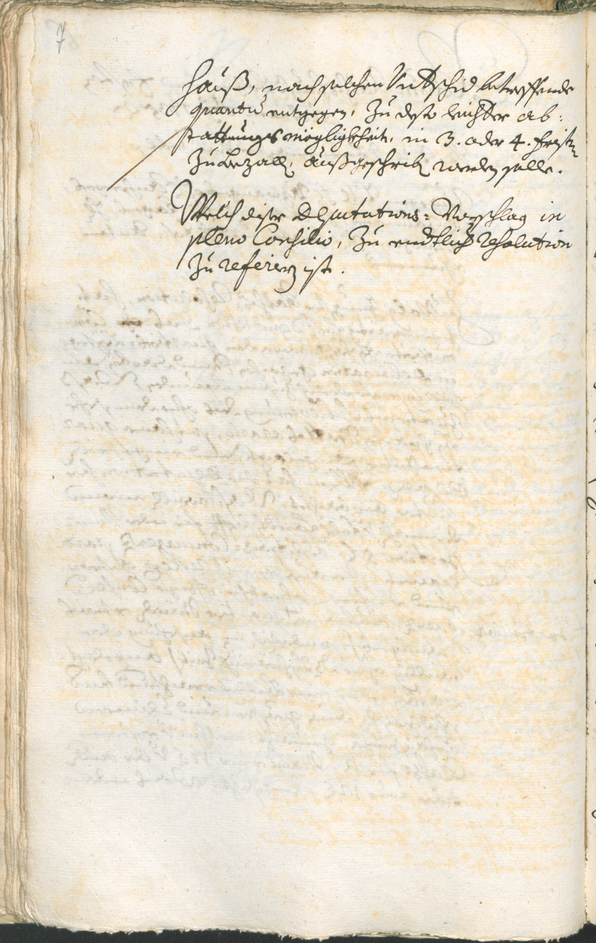 7
Hauß, nach solchen Undtschid betreffende
quantu entgegen, zu desto leichter ab:
stattungs mögligkheit, in 3. oder 4. fristn
zu bezaln, außgeschribn werden solle.
Welch dise Deputations=Vorschlag in
pleno Consilio, zu endtlich resolution
zu referiern ist.